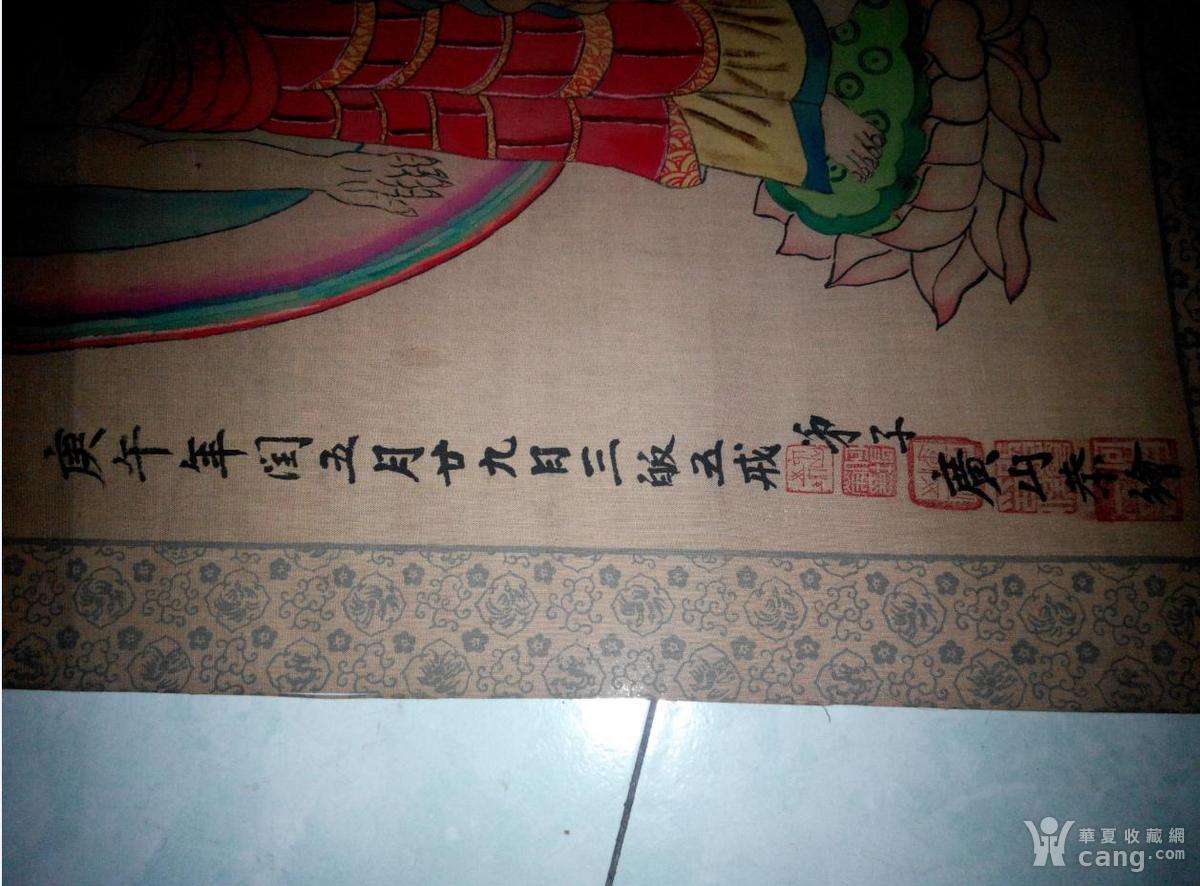 庚午年闰五月廿九日三皈五戒
弟子
廣山奉繪
華夏收藏網
cang.com